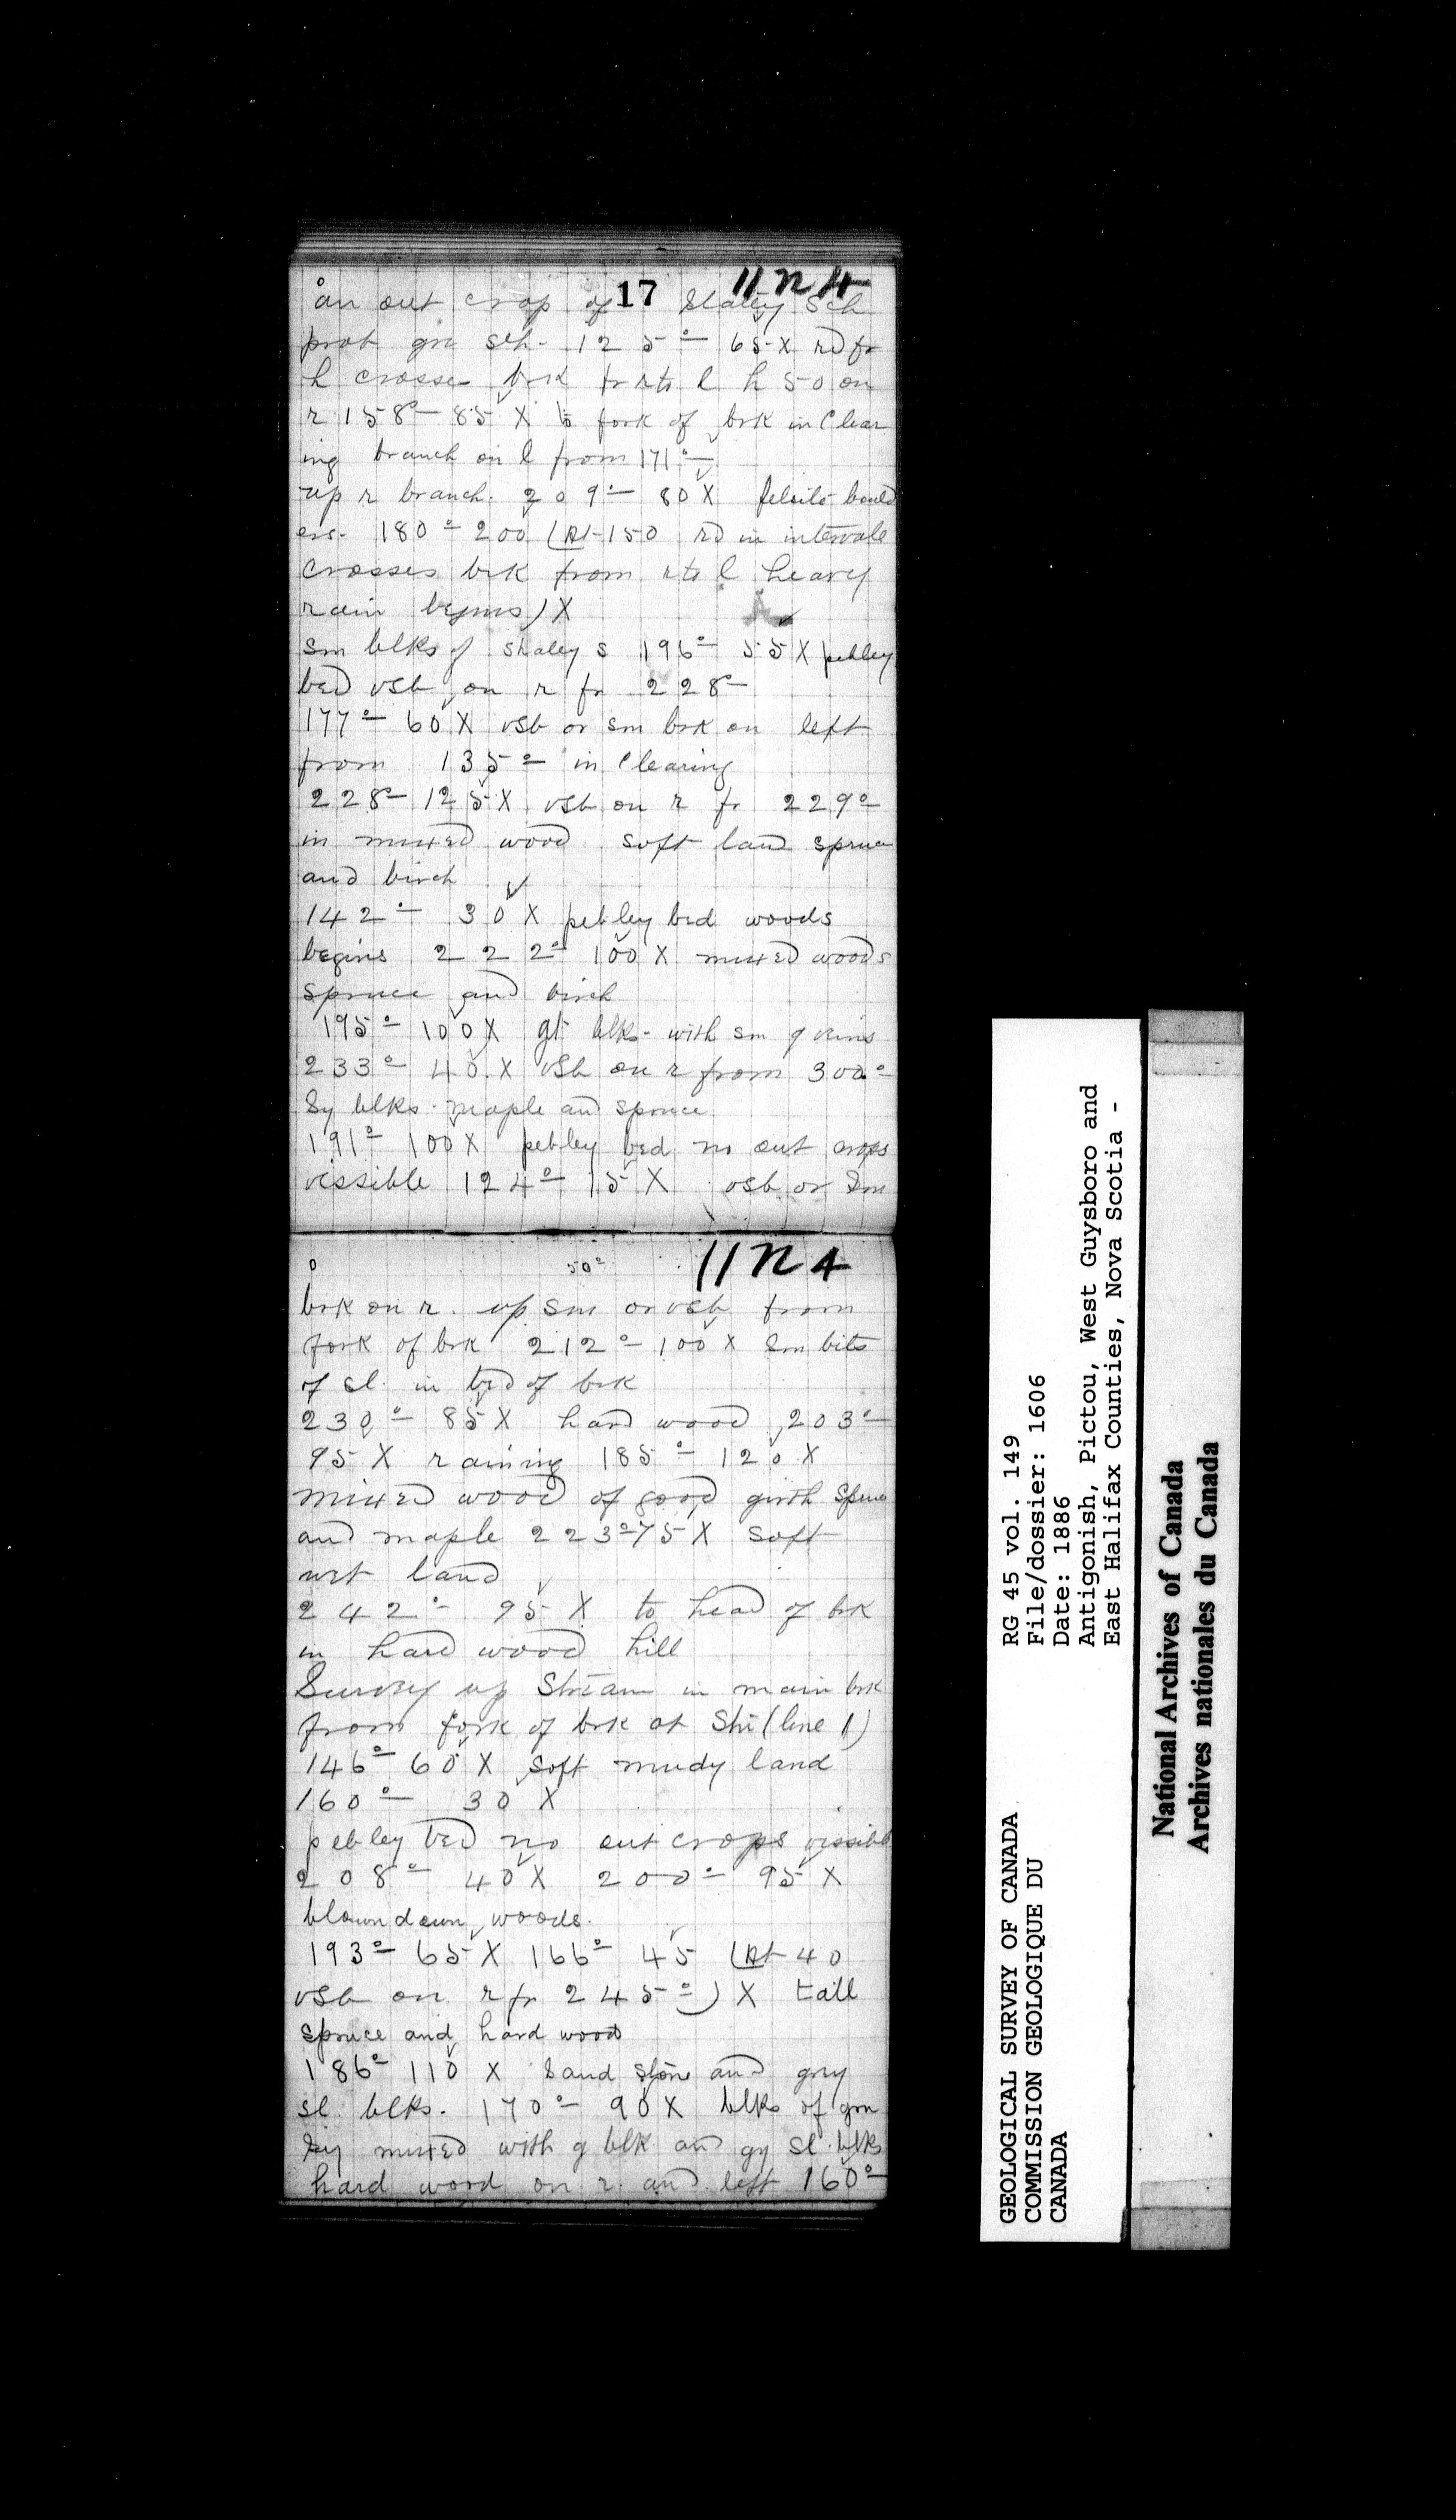 17 11 N 4
an out crop of slatey Sch
prob gn sch. 125° 65 X rd fr
h crosses brk fr r to l h 50 on
r 158° 85 X to fork of brk in Clear
ing branch on l from 171°
up r branch. 209° 80 X felsite bould
ers. 180° 200 (At 150 rd in intervale
crosses brk from r to l heavy
rain begins) X
sm blks of shaley s 196° 55 X pebley
bed vsb on r fr 228°
177° 60 X vsb or sm brk on left
from 135° in Clearing
228° 125 X vsb on r fr 229°
in mixed wood soft land spruce
and birch
142° 30 X pebley bed woods
begins 222° 100 X mixed woods
spruce and birch
195° 100 X gt blks. with sm q veins
233° 40 X vsb on r from 300°
Sy blks. maple and spruce
191° 100 X pebley bed no out crops
vissible 124° 15 X vsb or Sm
50° 11 N 4
brk on r. up sm or vsb from
fork of brk 212° 100 X Sm bits
of sl. in bed of brk
230° 85 X hard wood 203°
95 X raining 185° 120 X
mixed wood of good girth Spruce
and maple 223° 75 X soft
wet land
242° 95 X to head of brk
in hard wood hill
Survey up Stream in main brk
from fork of brk at Stn (line 1)
146° 60 X soft mudy land
160° 30 X
pebley bed no out crops vissible
208° 40 X 200° 95 X
blown down woods.
193° 65 X 166° 45 (At 40
vsb on r fr 245°) X tall
spruce and hard wood
186° 110 X Sand stone and grey
sl. blks. 170° 90 X blks of grn
Sy mixed with g blk and gy sl. blks
hard wood on r. and left 160°
RG 45 vol. 149
File/dossier: 1606
Date: 1886
Antigonish, Pictou, West Guysboro and
East Halifax Counties, Nova Scotia -
GEOLOGICAL SURVEY OF CANADA
COMMISSION GEOLOGIQUE DU
CANADA
National Archives of Canada
Archives nationales du Canada